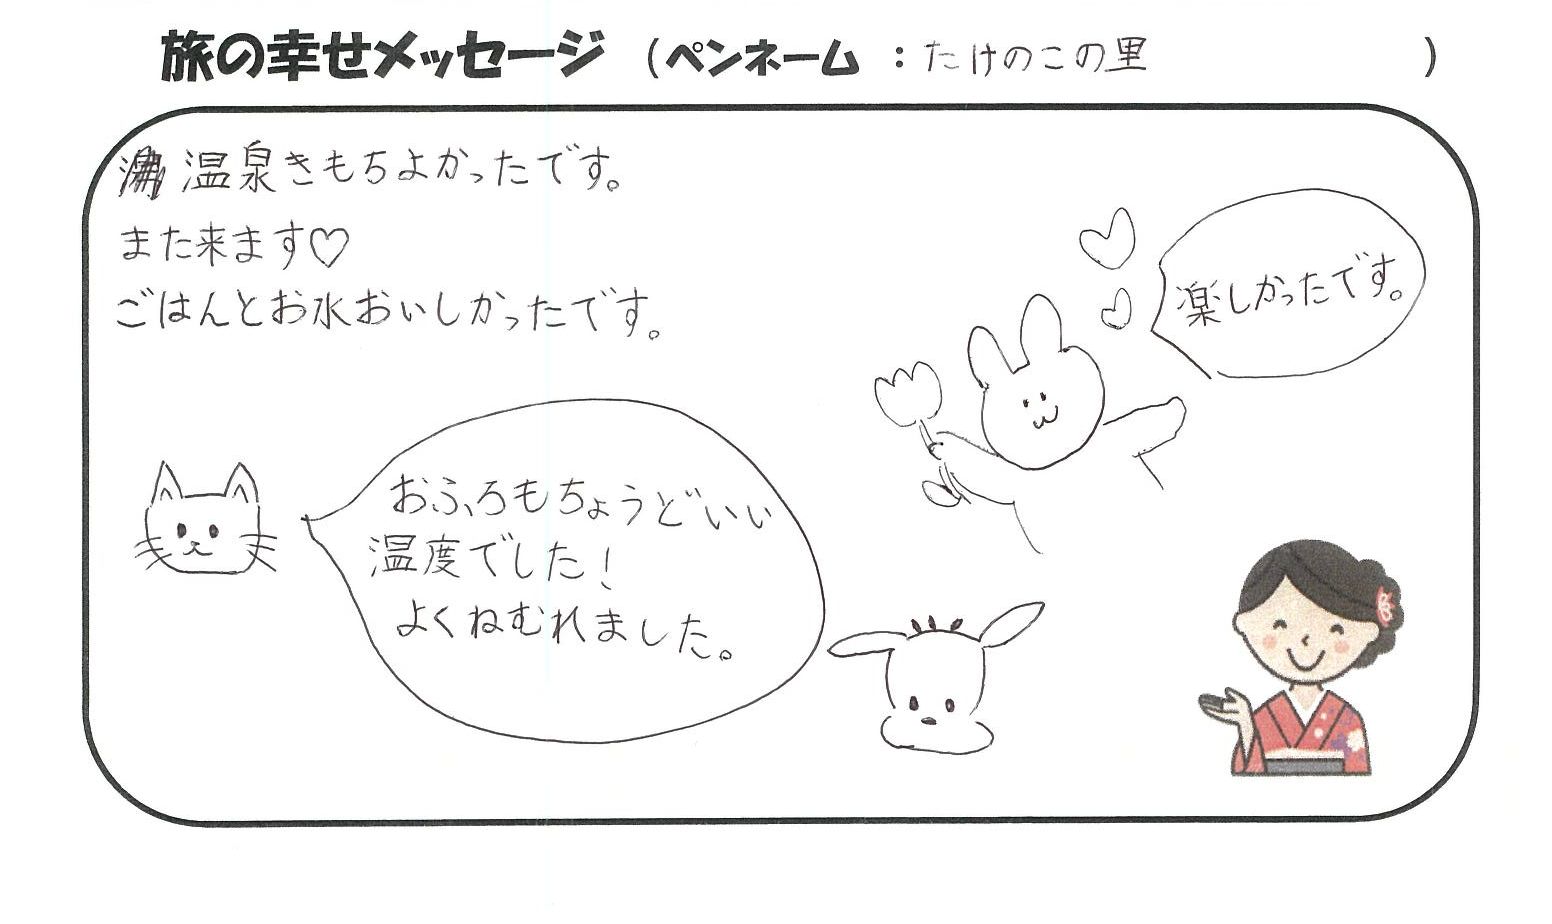 旅の幸せメッセージ (ペンネーム : たけのこの里 )
温泉きもちよかったです。
また来ます♡
ごはんとお水おいしかったです。
楽しかったです。
おふろもちょうどいい
温度でした!
よくねむれました。